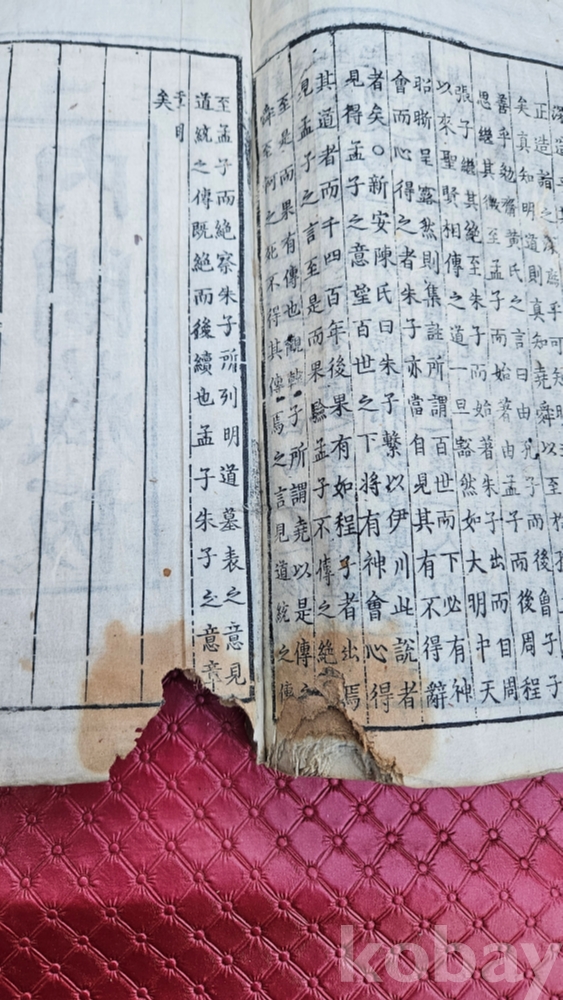 善乎勉齋黃氏之言曰由孔子而後曾子
思繼其微至孟子而始著由孟子而後周程
張子繼其絕至朱子而始著朱子出而自周
以來聖賢相傳之道一旦豁然如大明中天
昭晰呈露然則集註所謂百世而下必有神
會而心得之者朱子亦當自見其有不得辭
者矣○新安陳氏曰朱子繫以伊川此說者
見得孟子之意望百世之下將有神會心得
其道者而千四百年後果有如程子者出焉
見孟子之言至是而果驗孟子不傳之絶
至是而果有傳也觀韓子所謂堯以是傳之
軻之死不得其傳焉之言見道統之傳
至孟子而絕察朱子所列明道墓表之意見
道統之傳既絕而後續也孟子朱子之意章
章明
矣
kobay